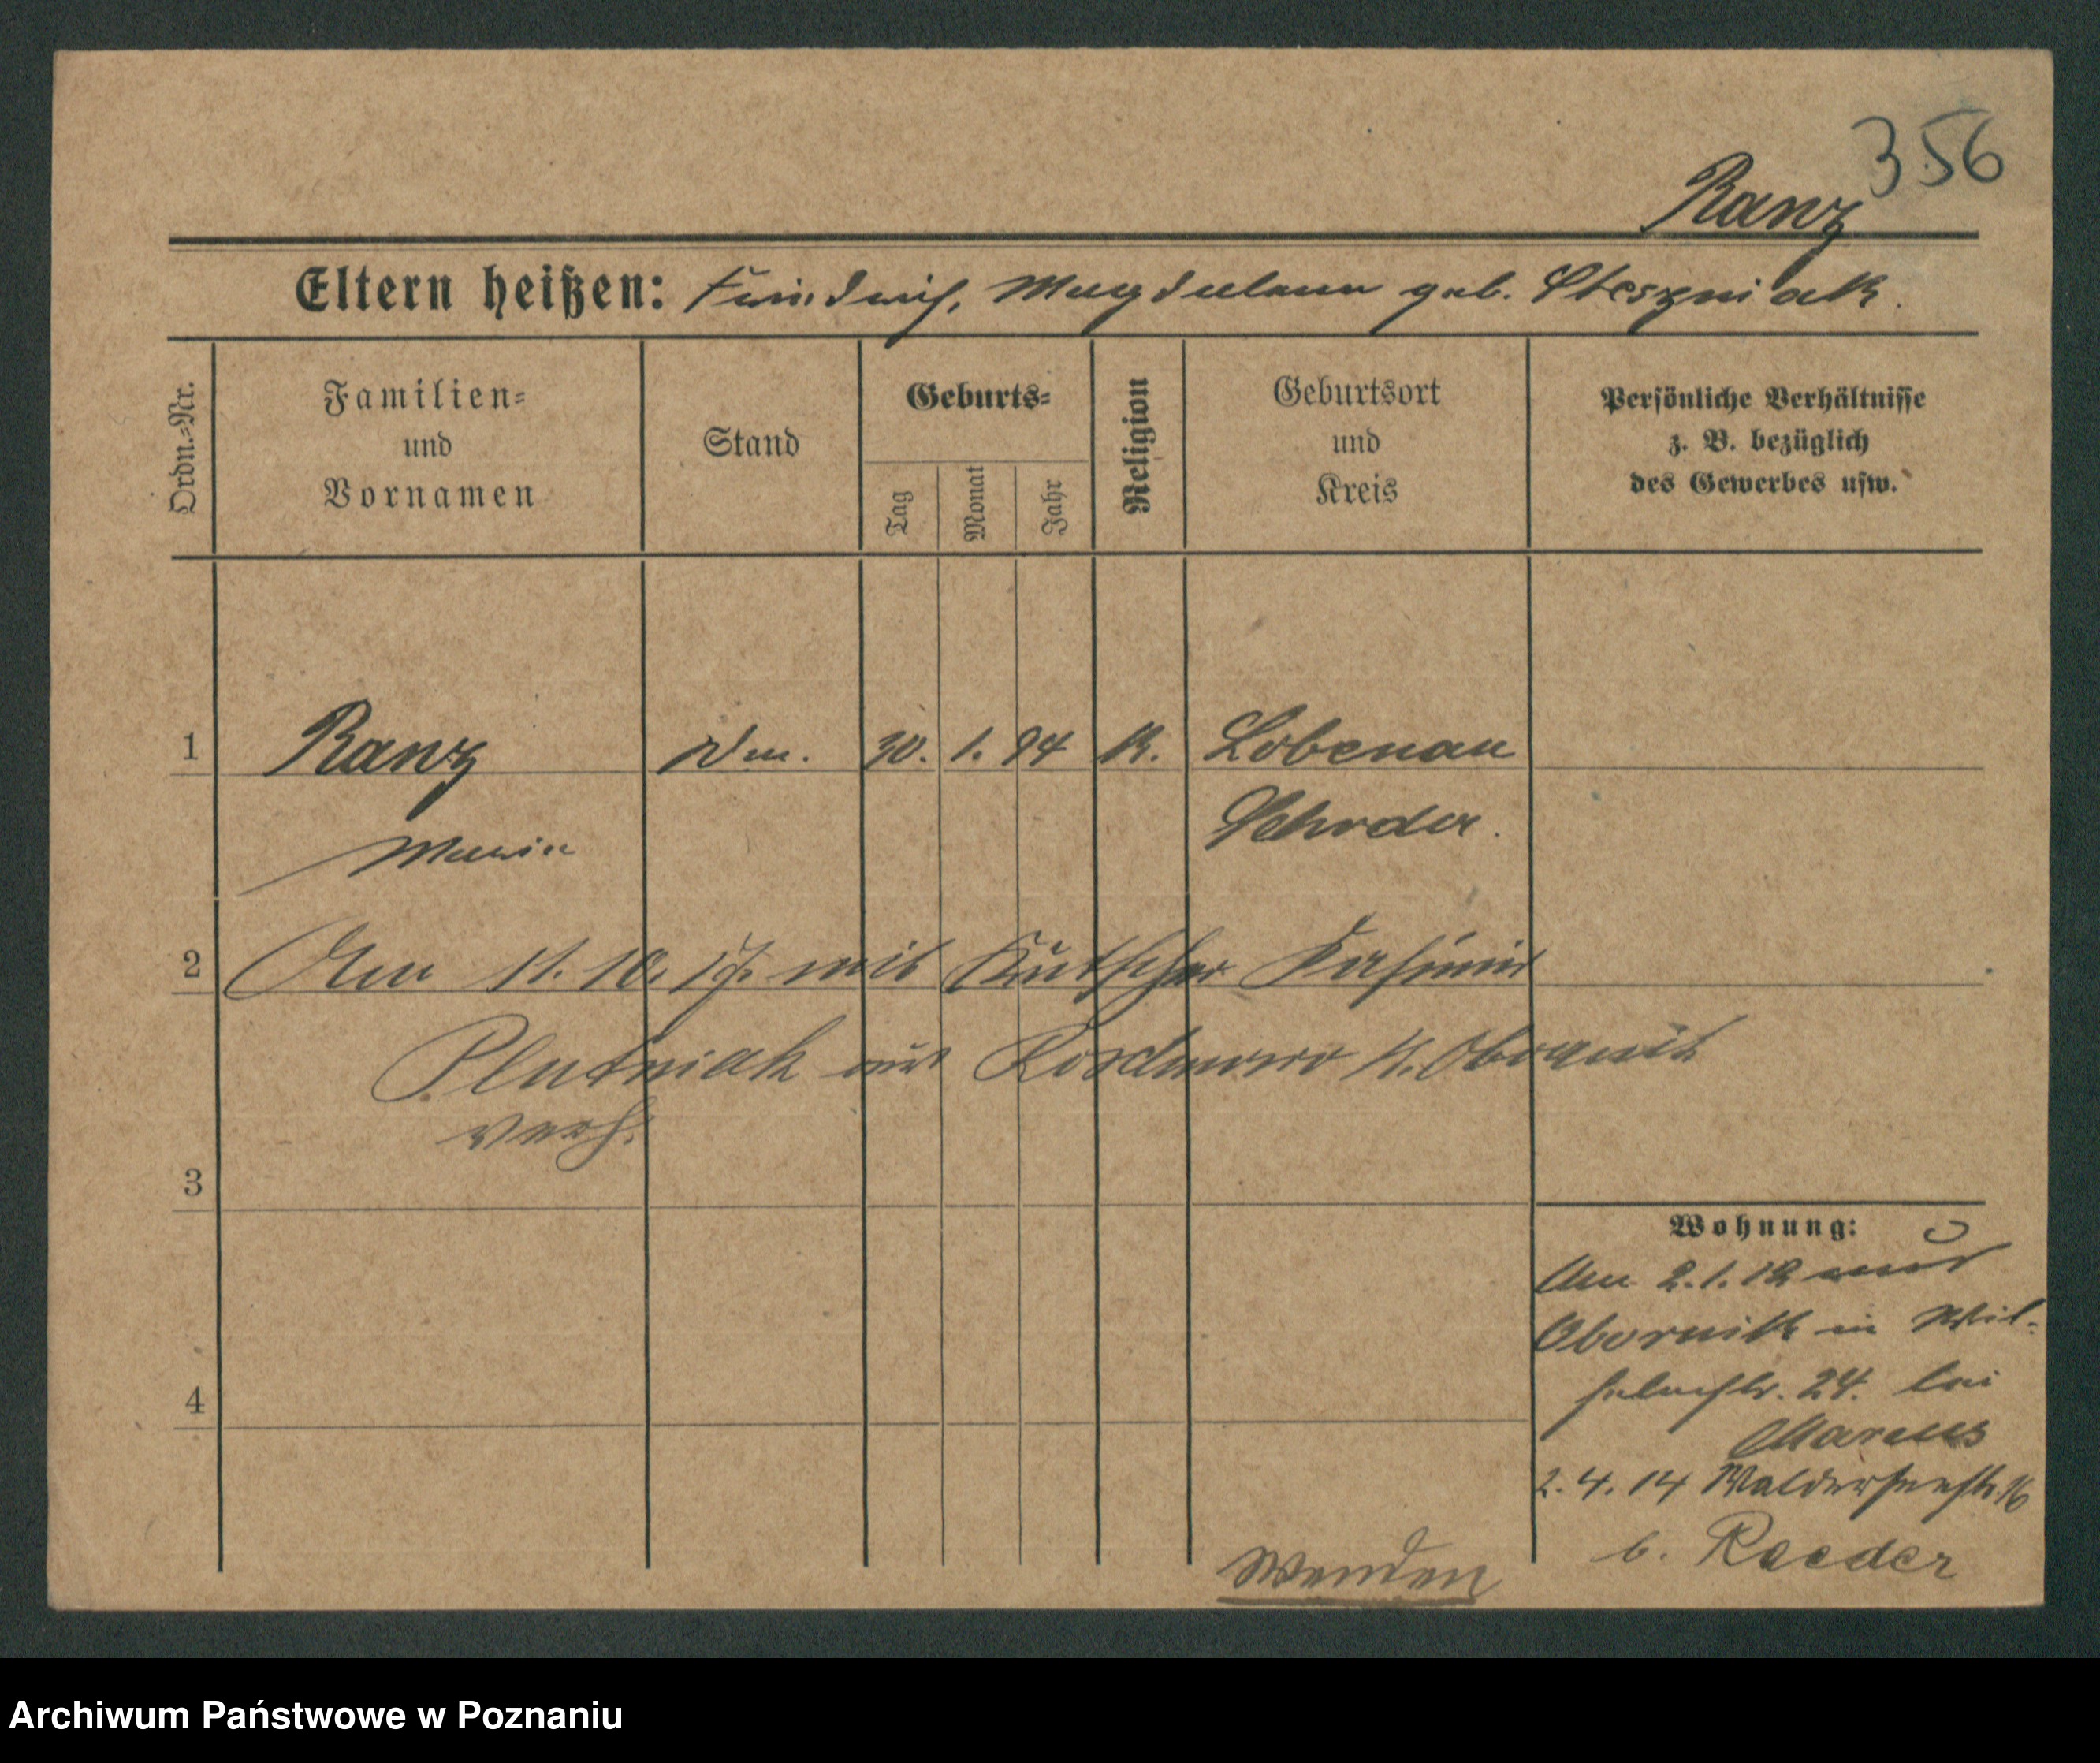 356
Ranz
Eltern heißen: Friedrich, Magdalena geb. Steszniak.
Ordn.-Nr.
Familien- und Vornamen
Stand
Geburts-
Tag
Monat
Jahr
Religion
Geburtsort und Kreis
Persönliche Verhältnisse z. B. bezüglich des Gewerbes usw.
1 Ranz 30. 1. 84 K. Lobenau
Maria
2 Am 11. 10. 17. mit Kutscher Kasimir
Plutniak aus K. Obornik
verh.
3
Wohnung:
Am 2.1.12 aus
Obornik in Wil-
helmstr. 24. bei
Marcus
4
2.4.14 Walderseestr. 16
b. Raeder
Wenden
Archiwum Państwowe w Poznaniu